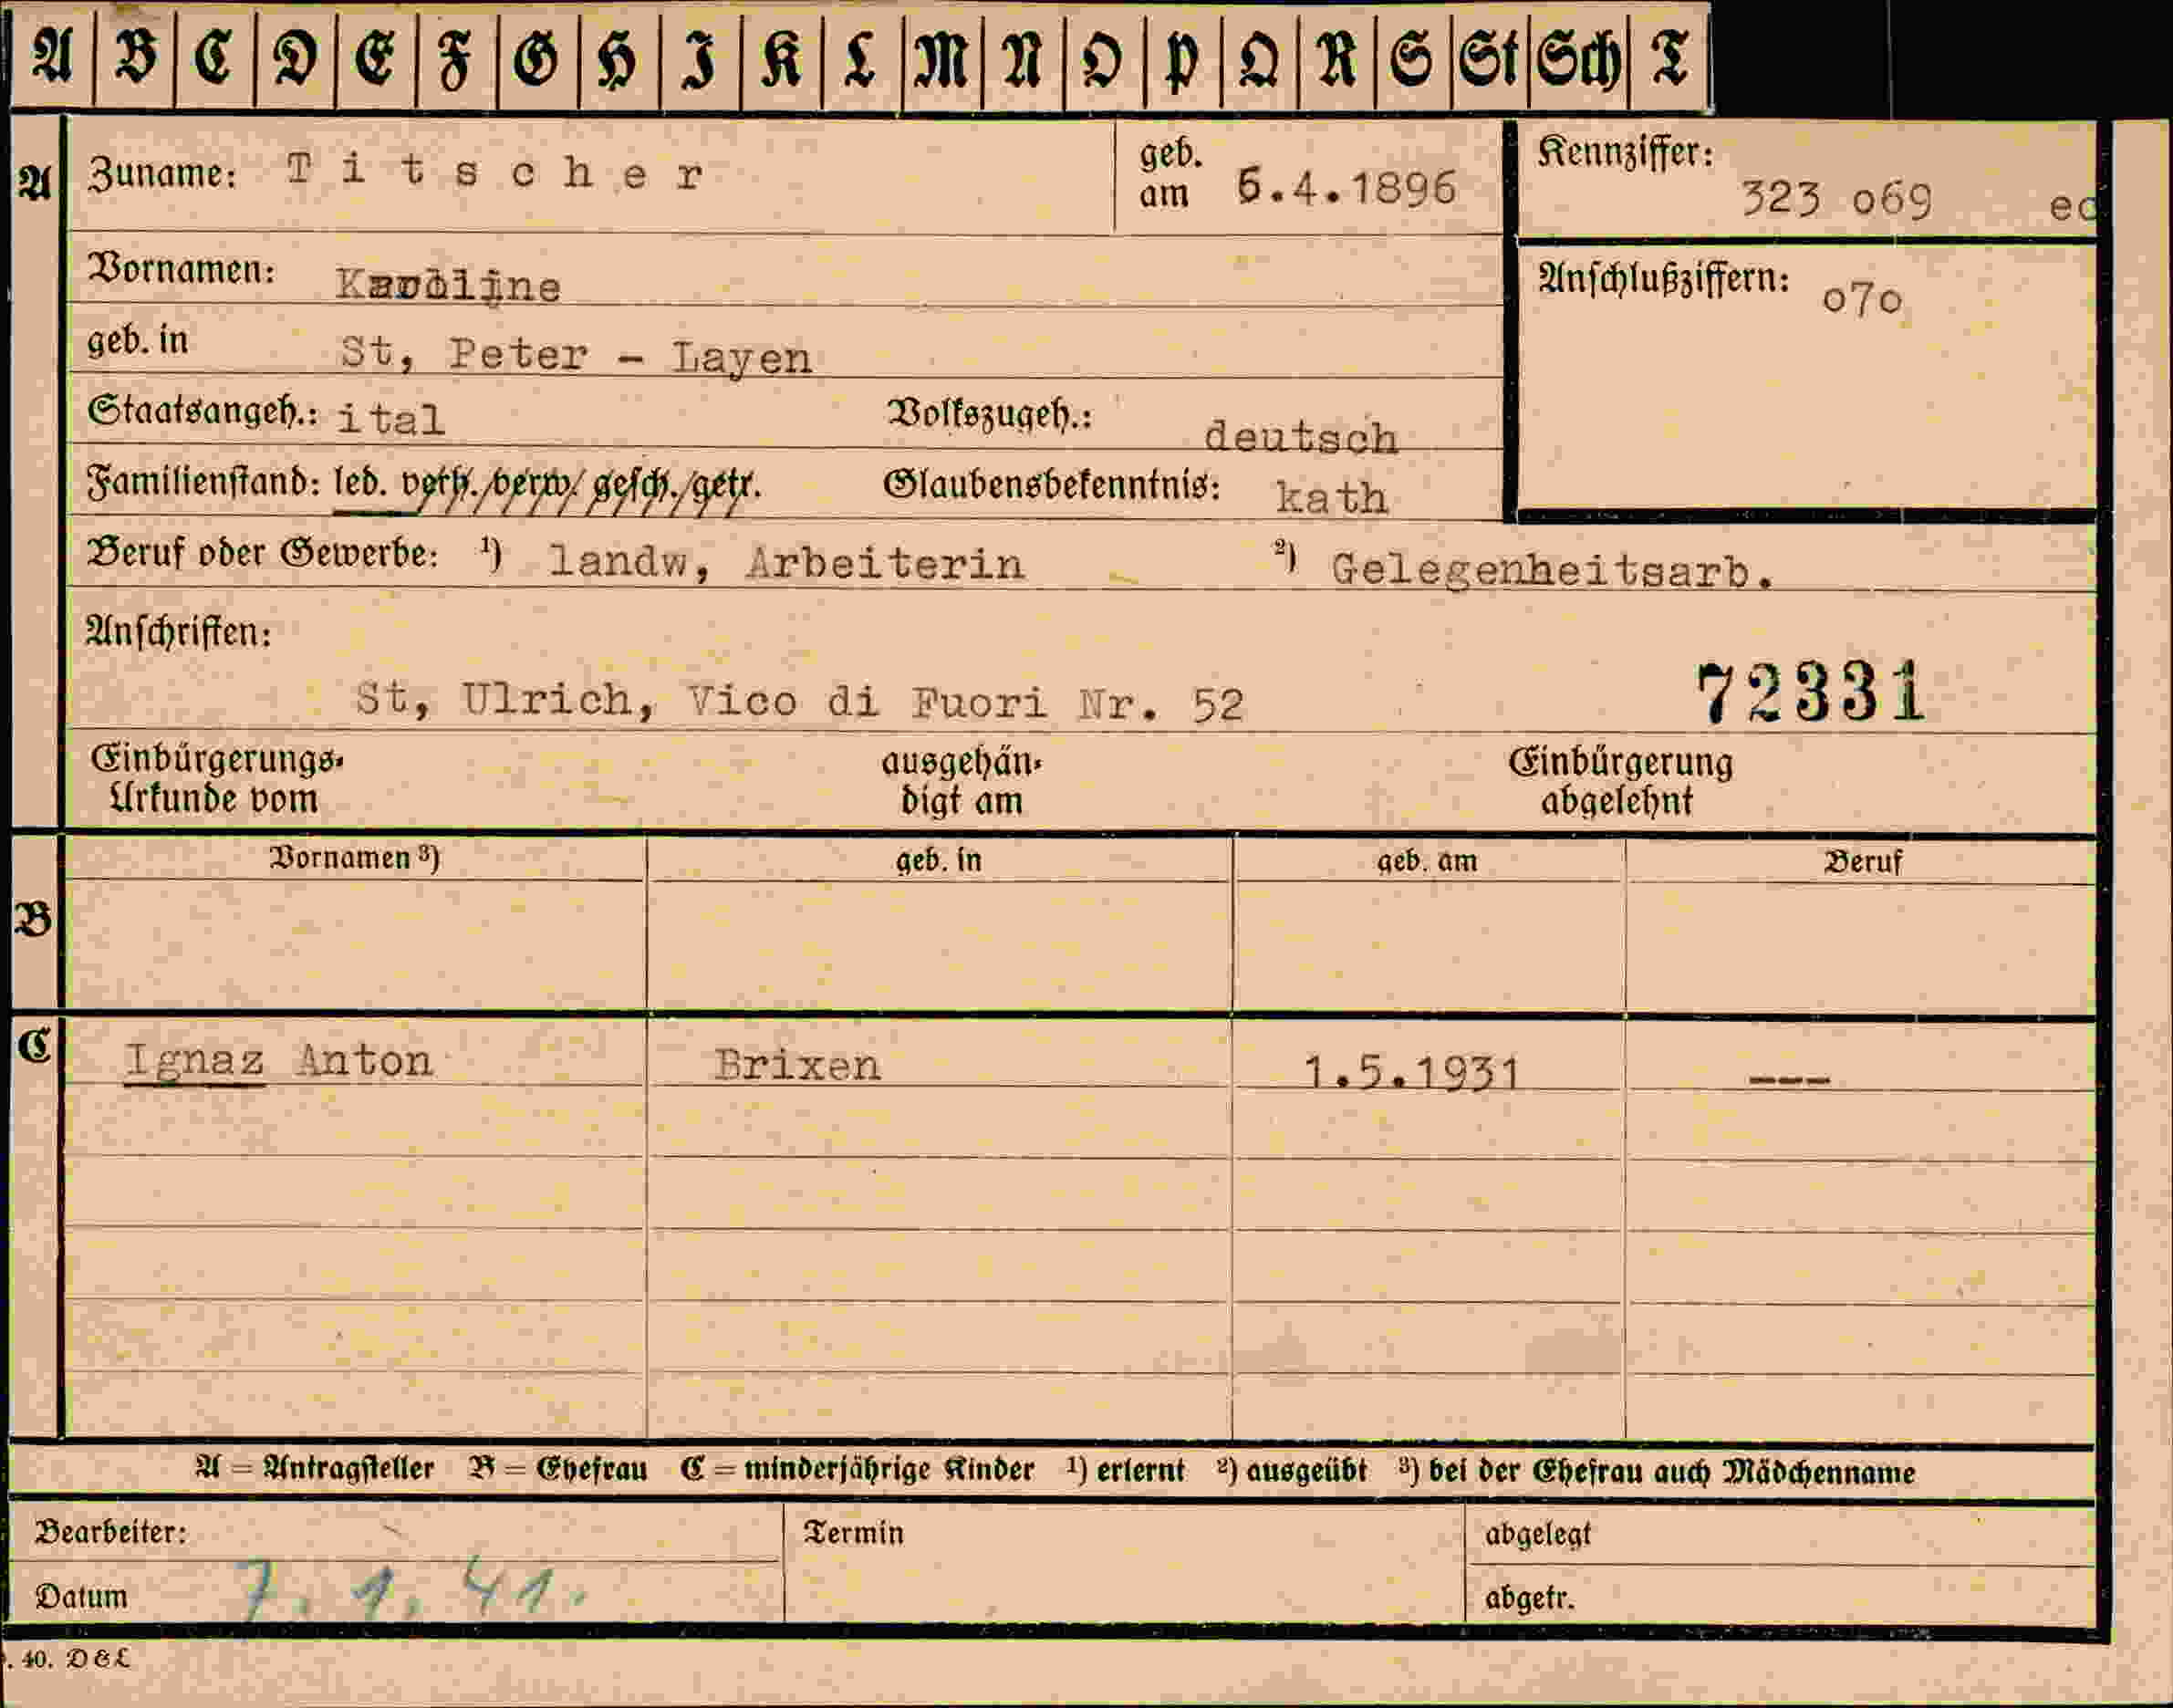 A B C D E F G H I K L M N O P Q R S St Sch T
A Zuname: Titscher geb. am 6.4.1896 Kennziffer: 323 069
Vornamen: Karoline
Anschlußziffern: 070
geb. in St, Peter - Layen
Staatsangeh.: ital Volkszugeh.: deutsch
Familienstand: led. verh./verw./gesch./getr. Glaubensbekenntnis: kath
Beruf oder Gewerbe: ¹) landw, Arbeiterin ²) Gelegenheitsarb.
Anschriften:
St, Ulrich, Vico di Fuori Nr. 52 72331
Einbürgerungs- ausgehän- Einbürgerung
Urkunde vom digt am abgelehnt
Vornamen ³) geb. in geb. am Beruf
B
C Ignaz Anton Brixen 1.5.1931 ---
A = Antragsteller B = Ehefrau C = minderjährige Kinder ¹) erlernt ²) ausgeübt ³) bei der Ehefrau auch Mädchenname
Bearbeiter: Termin abgelegt
Datum 7. 1. 41. abgetr.
. 40. D & L